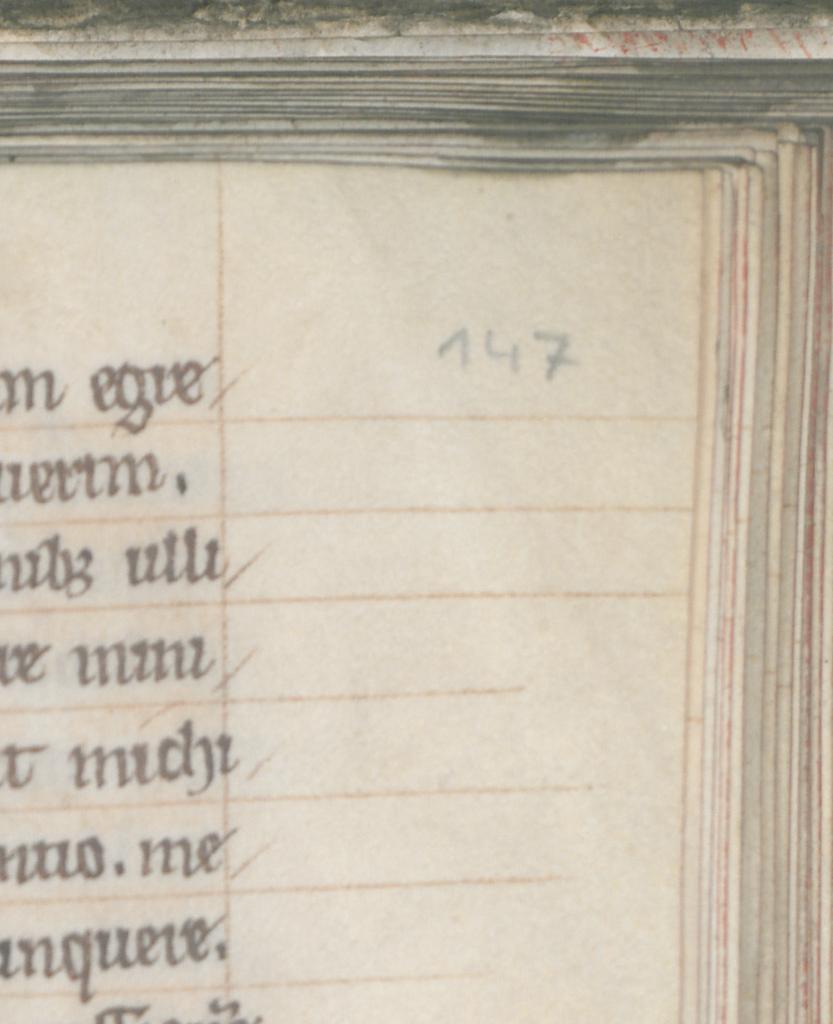 147
egre/
uerim.
nibꝫ ulli/
re inini/
it michi/
ntio. me/
inquere.